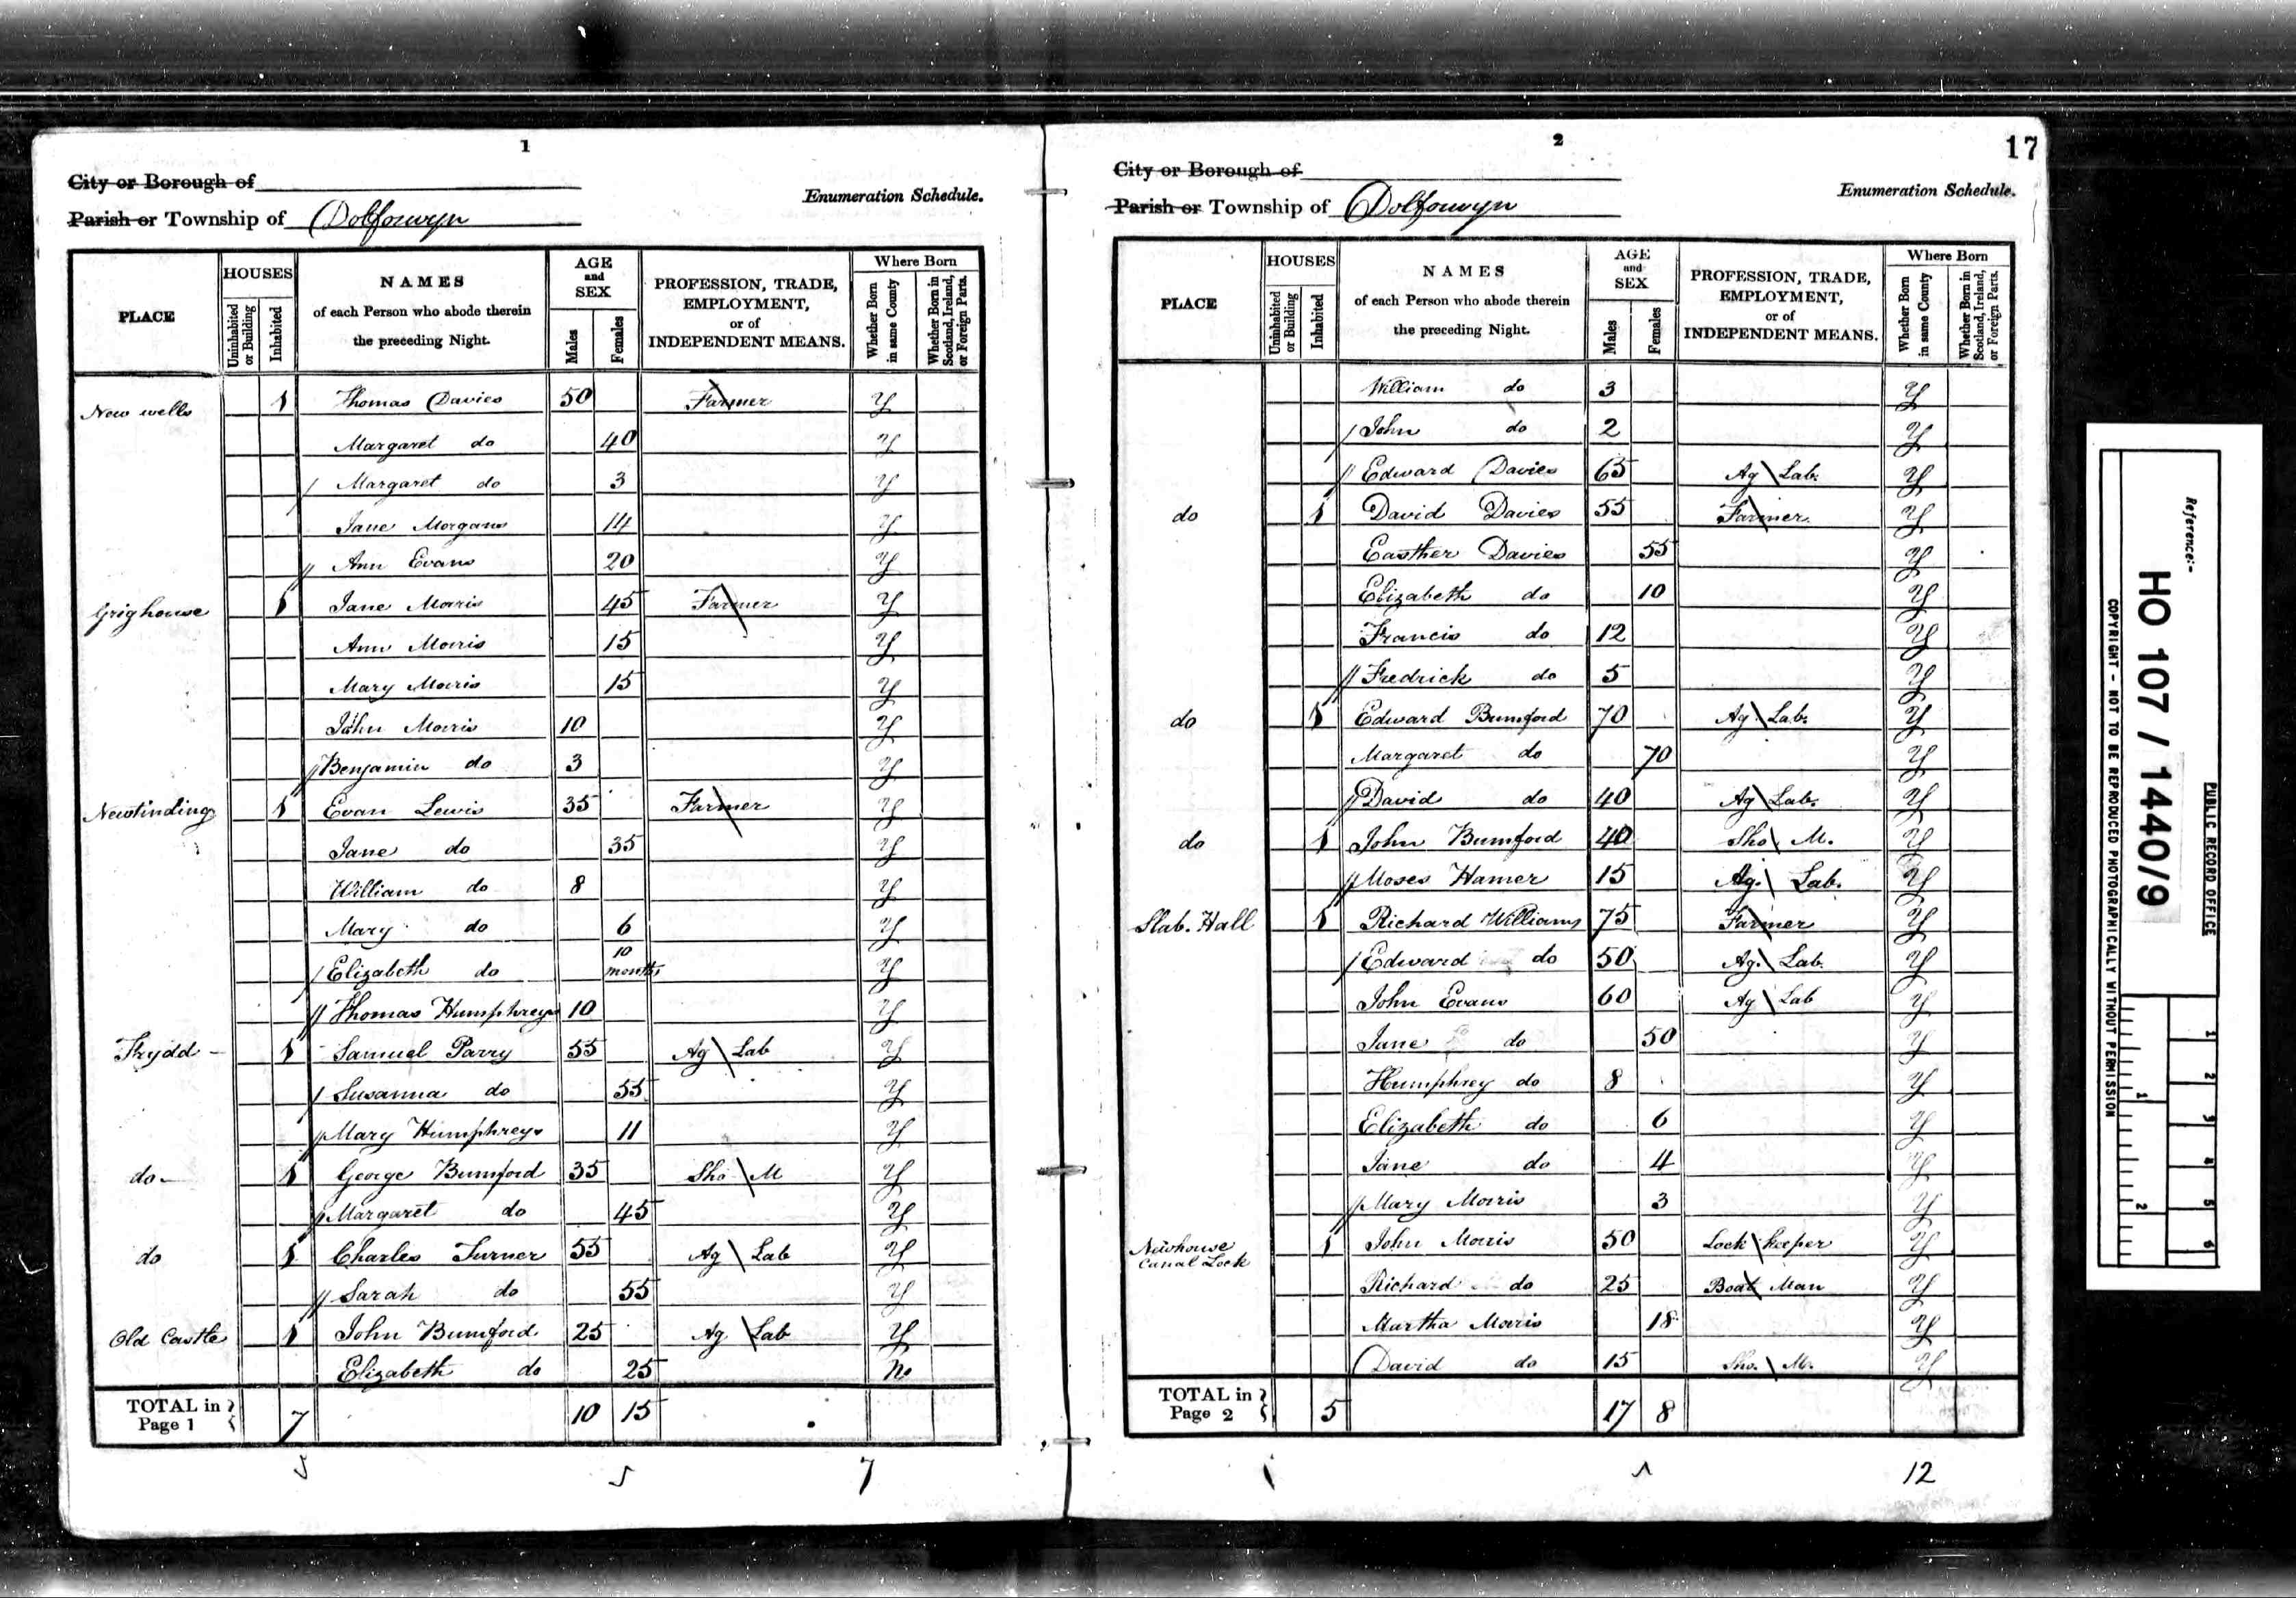 1
City or Borough of
Enumeration Schedule.
Parish or Township of Dolforwyn
PLACE
HOUSES
Uninhabited or Building
Inhabited
NAMES
of each Person who abode therein
the preceding Night.
AGE
and
SEX
Males
Females
PROFESSION, TRADE,
EMPLOYMENT,
or of
INDEPENDENT MEANS.
Where Born
Whether Born in same County
Whether Born in Scotland, Ireland, or Foreign Parts.
New wells 1 Thomas Davies 50 Farmer Y
Margaret do 40 Y
Margaret do 3 Y
Jane Morgans 14 Y
Ann Evans 20 Y
Grighouse 1 Jane Morris 45 Farmer Y
Ann Morris 15 Y
Mary Morris 15 Y
John Morris 10 Y
Benjamin do 3 Y
1 Evan Lewis 35 Farmer Y
Jane do 35 Y
William do 8 Y
Mary do 6 Y
Elizabeth do 10 months Y
Thomas Humphreys 10 Y
1 Samuel Parry 55 Ag Lab Y
Susanna do 55 Y
Mary Humphreys 11 Y
do 1 George Bumford 35 Sho M Y
Margaret do 45 Y
do 1 Charles Turner 55 Ag Lab Y
Sarah do 55 Y
Old Castle 1 John Bumford 25 Ag Lab Y
Elizabeth do 25 No
TOTAL in Page 1 7 10 15
5 5 7
2
17
City or Borough of
Enumeration Schedule.
Parish or Township of Dolforwyn
PLACE
HOUSES
Uninhabited or Building
Inhabited
NAMES
of each Person who abode therein
the preceding Night.
AGE
and
SEX
Males
Females
PROFESSION, TRADE,
EMPLOYMENT,
or of
INDEPENDENT MEANS.
Where Born
Whether Born in same County
Whether Born in Scotland, Ireland, or Foreign Parts.
William do 3 Y
John do 2 Y
Edward Davies 65 Ag Lab. Y
do 1 David Davies 55 Farmer Y
Easther Davies 55 Y
Elizabeth do 10 Y
Francis do 12 Y
Fredrick do 5 Y
do 1 Edward Bumford 70 Ag. Lab. Y
Margaret do 70 Y
David do 40 Ag Lab. Y
do 1 John Bumford 40 Sho M. Y
Moses Hamer 15 Ag. Lab. Y
Slab. Hall 1 Richard Williams 75 Farmer Y
Edward do 50 Ag. Lab. Y
John Evans 60 Ag Lab Y
Jane do 50 Y
Humphrey do 8 Y
Elizabeth do 6 Y
Jane do 4 Y
Mary Morris 3 Y
Newhouse Canal Lock 1 John Morris 50 Lock keeper Y
Richard do 25 Boat Man Y
Martha Morris 18 Y
David do 15 Sho. M. Y
TOTAL in Page 2 5 17 8
12
Reference:-
HO 107 / 1440/9
PUBLIC RECORD OFFICE
COPYRIGHT - NOT TO BE REPRODUCED PHOTOGRAPHICALLY WITHOUT PERMISSION
1 2 3 4 5 6
1 2